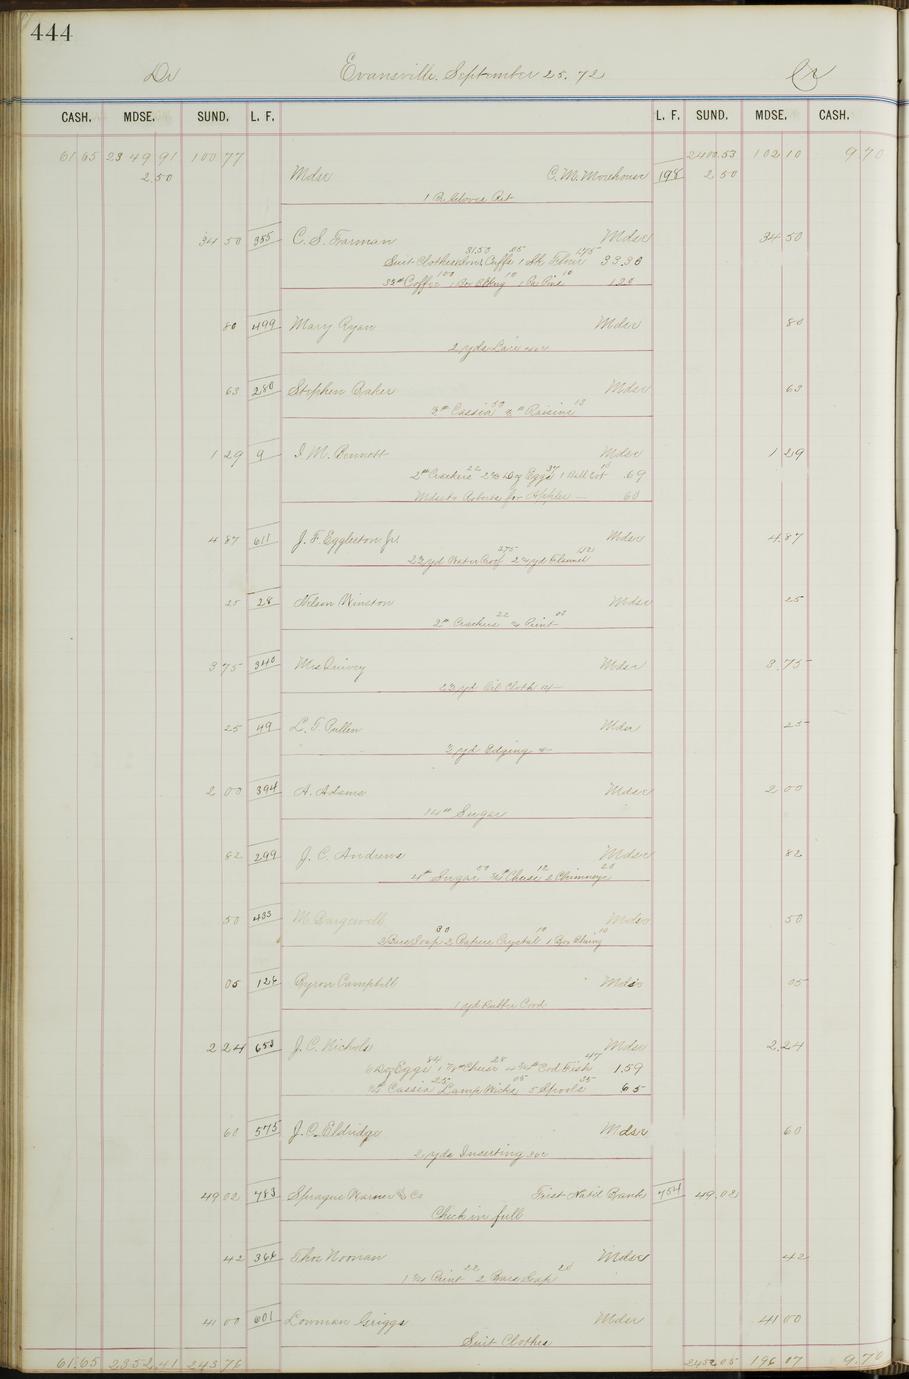 444
Dr Evansville, September 25. 72 Cr
CASH. MDSE. SUND. L. F. L. F. SUND. MDSE. CASH.
61.65 2349.91 100 77 2400.53 102 10 9.70
2.50 Mdse C. M. Morehouse 198 2 50
1 Pr Gloves Ret
34 50 355 C. S. Farman Mdse 34 50
Suit Clothes 31.50 Cuffs 05 1 Sk Flour 175 33.30
Coffee 100 10 10 1.20
80 499 Mary Ryan Mdse 80
2 yds
63 280 Stephen Baker Mdse 63
Cassia 50 Raisins 13
1 29 9 I. M. Bennett Mdse 1 29
2# Crackers 22 Doz Eggs 37 10 .69
for Apples — 60
4 87 611 J. F. Eggleston Jr. Mdse 4.87
yd Water Proof 275 yd Flannel
25 28 Nelson Winston Mdse 25
2# Crackers 22 03
3 75 340 Mrs Quivey Mdse 3.75
yd Oil Cloth
25 49 L. T. Pullen Mdse 25
3 yd Edging
2 00 394 A. Adams Mdse 2 00
14# Sugar
82 299 J. C. Andrews Mdse 82
4# Sugar 50 Cheese 12 2 Chimneys 20
50 433 Mdse 50
2 Bars Soap 30 2 Papers Crystal 10 1 Box Bluing 10
05 126 Byron Campbell Mdse 05
1 yd Rubber Cord
2 24 653 J. C. Nichols Mdse 2.24
6 Doz Eggs 84 Cheese 28 Cod Fish 47 1.59
Cassia 25 Lamp Wicks 05 5 Spools 35 65
60 575 J. C. Eldridge Mdse 60
2 yds Inserting
49 02 783 Sprague Warner & Co First Nat'l Bank 754 49.02
Check in full
42 366 Thos Noonan Mdse 42
22 2 Bars Soap 20
41 00 601 Lowman Griggs Mdse 41 00
Suit Clothes
61.65 2352.41 243 76 2452.05 196 07 9.70